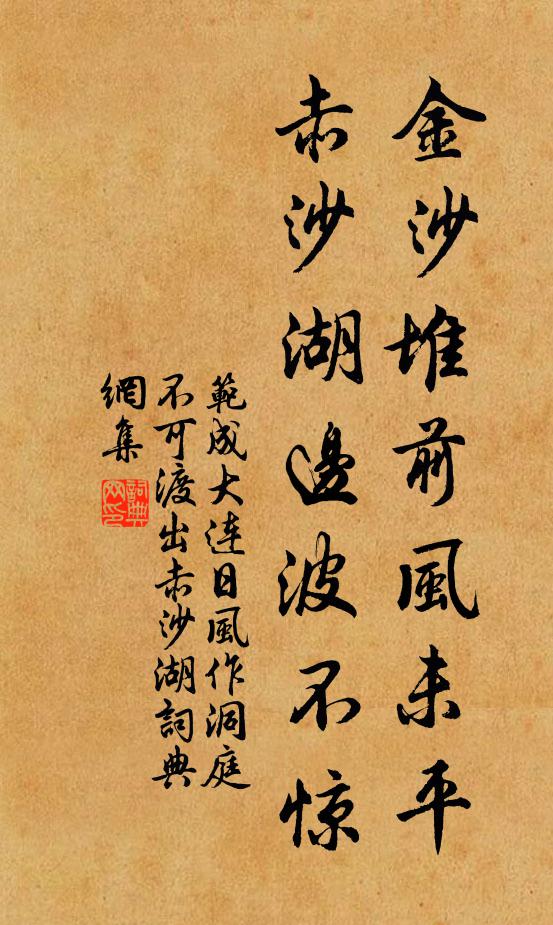 金沙堆前風未平
赤沙湖邊波不惊
範成大连日風作洞庭
不可渡出赤沙湖詞典
網集
詞典
网印